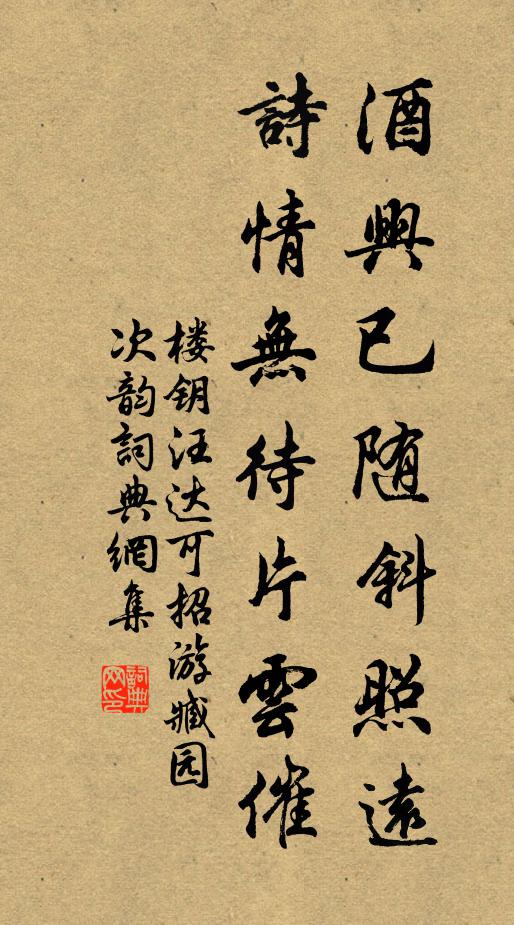 酒興已随斜照遠
詩情無待片雲催
楼钥汪达可招游臧园
次韵詞典網集
詞典网印